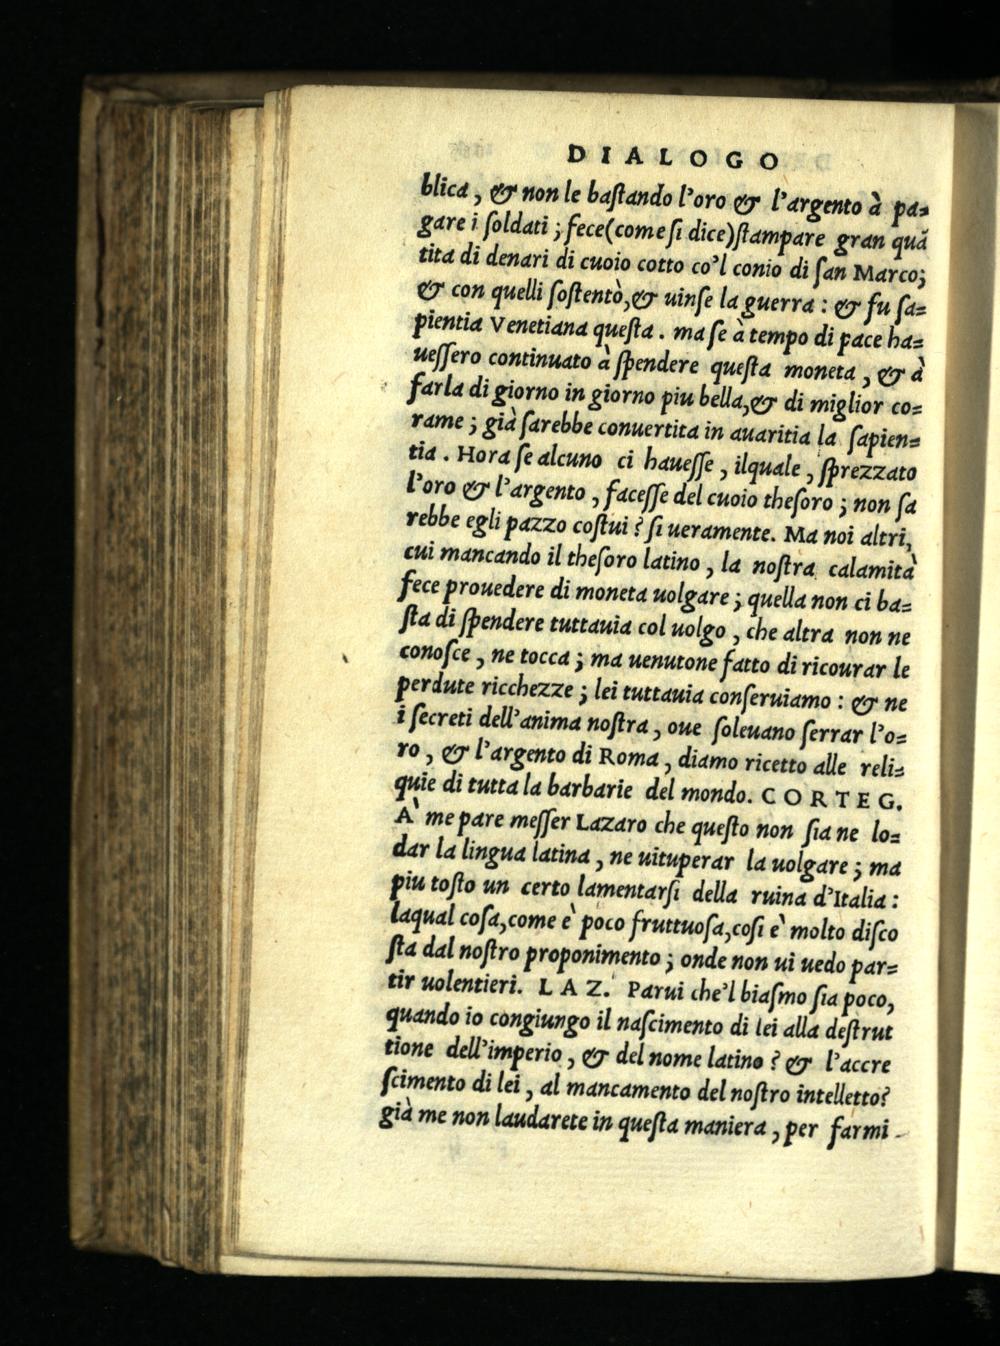 DIALOGO
blica, & non le baſtando l'oro & l'argento à pa=
gare i ſoldati; fece(come ſi dice)ſtampare gran quā
tita di denari di cuoio cotto co'l conio di ſan Marco;
& con quelli ſoſtentò,& uinſe la guerra: & fu ſa=
pientia Venetiana queſta. ma ſe à tempo di pace ha=
ueſſero continuato à ſpendere queſta moneta, & à
farla di giorno in giorno piu bella,& di miglior co=
rame; già ſarebbe conuertita in auaritia la ſapien=
tia. Hora ſe alcuno ci haueſſe, ilquale, ſprezzato
l'oro & l'argento, faceſſe del cuoio theſoro; non ſa
rebbe egli pazzo coſtui? ſi ueramente. Ma noi altri,
cui mancando il theſoro latino, la noſtra calamità
fece prouedere di moneta uolgare; quella non ci ba=
ſta di ſpendere tuttauia col uolgo, che altra non ne
conoſce, ne tocca; ma uenutone fatto di ricourar le
perdute ricchezze; lei tuttauia conſeruiamo: & ne
i ſecreti dell'anima noſtra, oue ſoleuano ſerrar l'o=
ro, & l'argento di Roma, diamo ricetto alle reli=
quie di tutta la barbarie del mondo. CORTEG.
A' me pare meſſer Lazaro che queſto non ſia ne lo=
dar la lingua latina, ne uituperar la uolgare; ma
piu toſto un certo lamentarſi della ruina d'Italia:
laqual coſa,come è poco fruttuoſa,coſi è molto diſco
ſta dal noſtro proponimento; onde non ui uedo par=
tir uolentieri. LAZ. Parui che'l biaſmo ſia poco,
quando io congiungo il naſcimento di lei alla deſtrut
tione dell'imperio, & del nome latino? & l'accre
ſcimento di lei, al mancamento del noſtro intelletto?
già me non laudarete in queſta maniera, per farmi